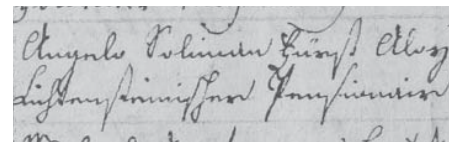 Angelo Soliman Fürst Aloy
Lichtensteinischer Pensionair